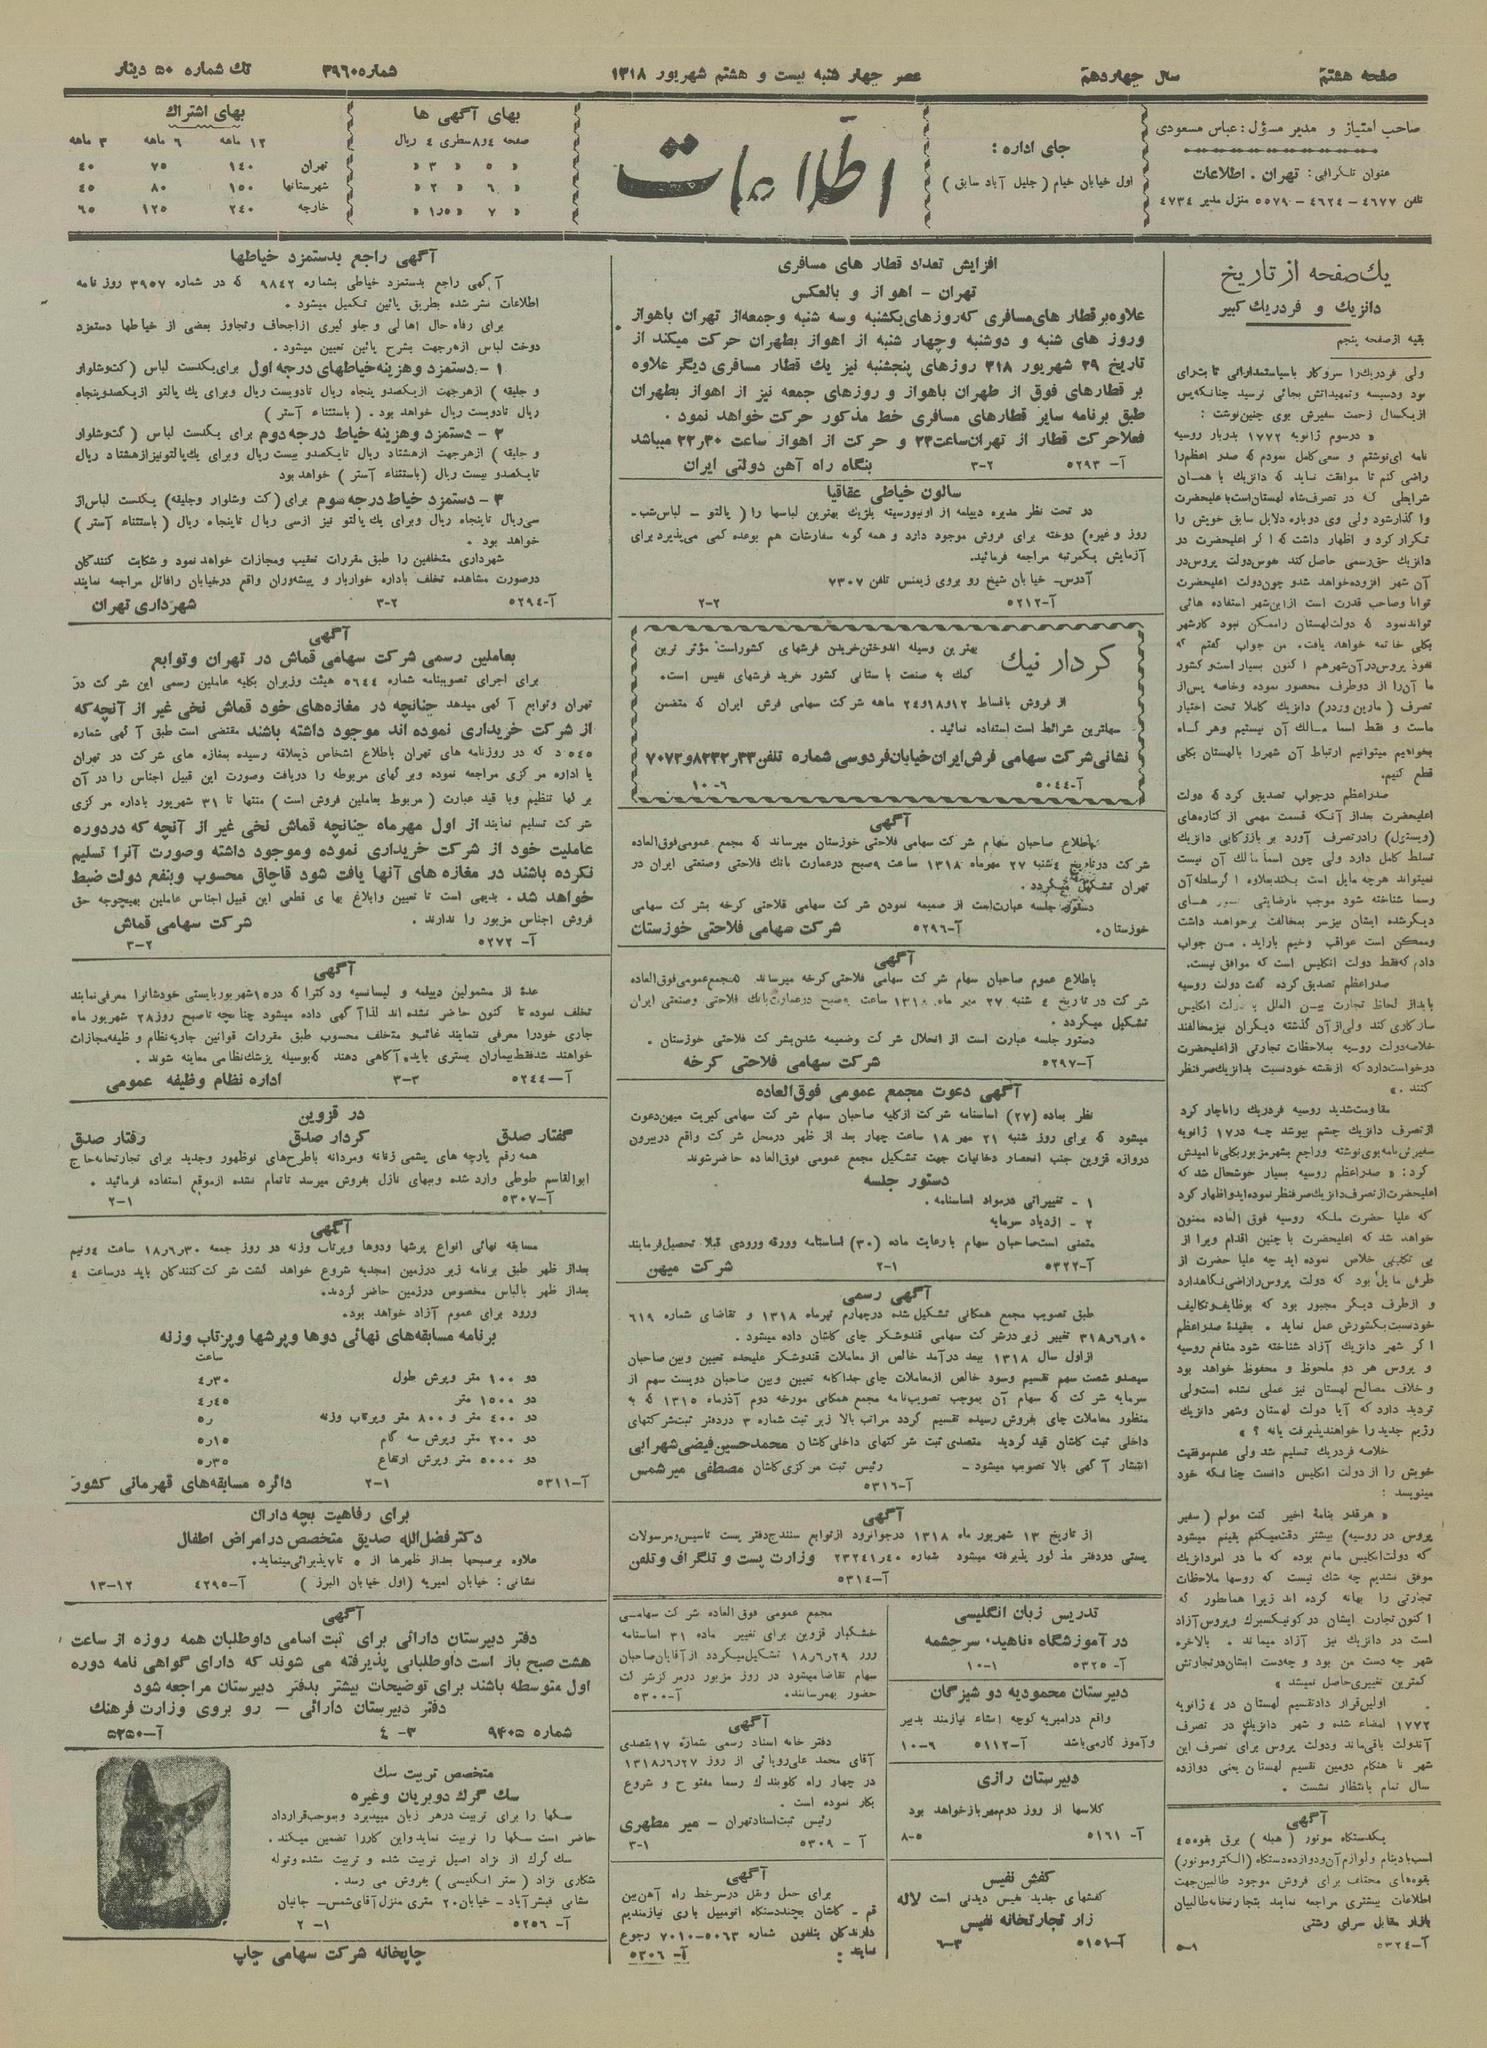 صفحه هشتم
سال چهاردهم
عصر چهار شنبه بیست و هشتم شهریور ۱۳۱۸
شماره ۳۹۶۰
تك شماره ۵۰ دینار
صاحب امتیاز و مدیر مسؤل: عباس مسعودی
عنوان تلگرافی: تهران . اطلاعات
تلفن ۴۶۷۷ – ۴۶۲۴ – ۵۵۷۹ منزل مدیر ۴۷۳۴
جای اداره :
اول خیابان خیام ( جلیل آباد سابق )
اطلاعات
بهای آگهی ها
صفحه ۴و۸ سطری ۴ ریال
« ۵ « ۳ «
« ۶ « ۲ «
« ۷ « ۱ر۵ «
بهای اشتراك
۱۲ ماهه ۶ ماهه ۳ ماهه
تهران ۱۴۰ ۷۵ ۴۰
شهرستانها ۱۵۰ ۸۰ ۴۵
خارجه ۲۴۰ ۱۲۵ ۶۵
یك صفحه از تاریخ
دانزیك و فردریك کبیر
بقیه از صفحه پنجم
ولی فردریك را سروکار باسیاستمدارانی ثابت رای
بود ودسیسه وتمهیداتش بجائی نرسید چنانکه پس
از یکسال زحمت سفیرش بوی چنین نوشت :
« درسوم ژانویه ۱۷۷۲ بدربار روسیه
نامه ای نوشتم و سعی کامل نمودم که صدر اعظم را
راضی کنم تا موافقت نماید که دانزیك با همان
شرایطی که در تصرف شاه لهستان است باعلیحضرت
واگذار شود ولی وی دوباره دلایل سابق خویش را
تکرار کرد و اظهار داشت که اگر اعلیحضرت در
دانزیك حق رسمی حاصل کند هوس دولت پروس در
آن شهر افزوده خواهد شد و چون دولت اعلیحضرت
توانا وصاحب قدرت است از این شهر استفاده هائی
تواند نمود که دولت لهستان را ممکن نبود کار شهر
بکلی خاتمه خواهد یافت. من جواب گفتم که
نفوذ پروس در آن شهر هم اکنون بسیار است و کشور
ما آن را از دو طرف محصور نموده وخاصه پس از
تصرف ( مارین وردر) دانزیك کاملا تحت اختیار
ماست و فقط اسما مالك آن نیستیم وهر گاه
بخواهیم میتوانیم ارتباط آن شهر را بالهستان بکلی
قطع کنیم.
صدراعظم درجواب تصدیق کرد که دولت
اعلیحضرت بعد از آنکه قسمت مهمی از کناره های
(ویستول) را در تصرف آورد بر بازرگانی دانزیك
تسلط کامل دارد ولی چون اسما مالك آن نیست
نمیتواند هرچه مایل است بکند بعلاوه اگر سلطه آن
رسما شناخته شود موجب نارضایتی های
دیگر شده ایشان نیز سر بمخالفت برخواهند داشت
وممکن است عواقب وخیم باراید. من جواب
دادم که فقط دولت انگلیس است که موافق نیست.
صدراعظم تصدیق کرده گفت دولت روسیه
باید از لحاظ تجارت بین الملل با دولت انگلیس
سازگاری کند ولی از آن گذشته دیگران نیز مخالفند
خلاصه دولت روسیه بملاحظات تجارتی از اعلیحضرت
درخواست دارد که از نقشه خود نسبت بدانزیك صرفنظر
کنند . »
مقاومت شدید روسیه فردریك را ناچار کرد
از تصرف دانزیك چشم بپوشد چه در ۱۷ ژانویه
سفیرش نامه بوی نوشته و راجع بشهر مزبور بکلی ناامیدش
کرد: « صدراعظم روسیه بسیار خوشحال شد که
اعلیحضرت از تصرف دانزیك صرفنظر نموده اید و اظهار کرد
که علیا حضرت ملکه روسیه فوق العاده ممنون
خواهد شد که اعلیحضرت با چنین اقدام ویرا از
بی تکلیفی خلاص نموده اید چه علیا حضرت از
طرفی مایل بود که دولت پروس را راضی نگاهدارد
و از طرف دیگر مجبور بود که بوظایف و تکالیف
خود نسبت بکشورش عمل نماید . بعقیده صدراعظم
اگر شهر دانزیك آزاد شناخته شود منافع روسیه
و پروس هر دو ملحوظ و محفوظ خواهد بود
و خلاف مصالح لهستان نیز عملی نشده است ولی
تردید دارد که آیا دولت لهستان وشهر دانزیك
رژیم جدید را خواهند پذیرفت یا نه ؟ »
خلاصه فردریك تسلیم شد ولی عدم موفقیت
خویش را از دولت انگلیس دانست چنانکه خود
مینویسد :
« هر قدر بنامه اخیر کنت مولم (سفیر
پروس در روسیه) بیشتر دقت میکنم یقینم میشود
که دولت انگلیس مانع بوده که ما در امر دانزیك
موفق نشدیم چه شك نیست که روسها ملاحظات
تجارتی را بهانه کرده اند زیرا همانطور که
اکنون تجارت ایشان در کونیکسبرك وپروس آزاد
است در دانزیك نیز آزاد میماند . بالاخره
شهر چه دست من بود و چه دست ایشان در تجارتش
کمترین تغییری حاصل نمیشد »
اولین قرار داد تقسیم لهستان در ۴ ژانویه
۱۷۷۲ امضاء شده و شهر دانزیك در تصرف
آندولت باقی ماند و دولت پروس برای تصرف این
شهر تا هنگام دومین تقسیم لهستان یعنی دوازده
سال تمام بانتظار نشست .
آگهی
یکدستگاه موتور ( هیله ) برق بقوه ۴۵
اسب با دینام و لوازم آن و دوازده دستگاه (الکتروموتور)
بقوه های مختلف برای فروش موجود طالبین جهت
اطلاعات بیشتری مراجعه نمایند بتجارتخانه طالبیان
بازار مقابل سرای رشتی
آ–۵۳۲۴ ۱–۵
افزایش تعداد قطار های مسافری
تهران – اهواز و بالعکس
علاوه بر قطار های مسافری که روزهای یکشنبه وسه شنبه وجمعه از تهران باهواز
وروز های شنبه و دوشنبه وچهار شنبه از اهواز بطهران حرکت میکند از
تاریخ ۲۹ شهریور ۳۱۸ روزهای پنجشنبه نیز یك قطار مسافری دیگر علاوه
بر قطارهای فوق از طهران باهواز و روزهای جمعه نیز از اهواز بطهران
طبق برنامه سایر قطارهای مسافری خط مذکور حرکت خواهد نمود .
فعلا حرکت قطار از تهران ساعت ۲۳ و حرکت از اهواز ساعت ۲۲ر۳۰ میباشد
آ– ۵۲۹۳ ۲–۳ بنگاه راه آهن دولتی ایران
سالون خیاطی عقاقیا
در تحت نظر مدیره دیپلمه از اونیورسیته بلژیك بهترین لباسها را ( پالتو – لباس شب–
روز و غیره) دوخته برای فروش موجود دارد و همه گونه سفارشات هم بوعده کمی می پذیرد برای
آزمایش یکمرتبه مراجعه فرمائید.
آدرس– خیابان شیخ رو بروی زیمنس تلفن ۷۳۰۷
آ–۵۲۱۲ ۲–۲
کردار نیك
بهترین وسیله اندوختن خریدن فرشهای کشور است مؤثر ترین
کمك به صنعت باستانی کشور خرید فرشهای نفیس است.
از فروش باقساط ۱۲و۱۸و۲۴ ماهه شرکت سهامی فرش ایران که متضمن
سهلترین شرائط است استفاده نمائید .
نشانی شرکت سهامی فرش ایران خیابان فردوسی شماره تلفن ۳۳ر۸۲۳۲و۷۰۷۳
آ–۵۰۴۴ ۶–۱۰
آگهی
باطلاع صاحبان سهام شرکت سهامی فلاحتی خوزستان میرساند که مجمع عمومی فوق العاده
شرکت در تاریخ ۴ شنبه ۲۷ مهر ماه ۱۳۱۸ ساعت ۹ صبح در عمارت بانك فلاحتی وصنعتی ایران در
تهران تشکیل میگردد .
دستور جلسه عبارت است از ضمیمه نمودن شرکت سهامی فلاحتی کرخه بشرکت سهامی
خوزستان. آ–۵۲۹۶ شرکت سهامی فلاحتی خوزستان
آگهی
باطلاع عموم صاحبان سهام شرکت سهامی فلاحتی کرخه میرساند مجمع عمومی فوق العاده
شرکت در تاریخ ۴ شنبه ۲۷ مهر ماه ۱۳۱۸ ساعت ۹ صبح در عمارت بانك فلاحتی وصنعتی ایران
تشکیل میگردد .
دستور جلسه عبارت است از انحلال شرکت وضمیمه شدن بشرکت فلاحتی خوزستان .
آ–۵۲۹۷ شرکت سهامی فلاحتی کرخه
آگهی دعوت مجمع عمومی فوق العاده
نظر بماده (۲۷) اساسنامه شرکت از کلیه صاحبان سهام شرکت سهامی کبریت میهن دعوت
میشود که برای روز شنبه ۲۱ مهر ۱۸ ساعت چهار بعد از ظهر در محل شرکت واقع در بیرون
دروازه قزوین جنب انحصار دخانیات جهت تشکیل مجمع عمومی فوق العاده حاضر شوند
دستور جلسه
۱ – تغییراتی در مواد اساسنامه .
۲ – ازدیاد سرمایه
متمنی است صاحبان سهام با رعایت ماده (۳۰) اساسنامه وورقه ورودی قبلا تحصیل فرمایند
آ–۵۳۲۲ ۱–۲ شرکت میهن
آگهی رسمی
طبق تصویب مجمع همگانی تشکیل شده در چهارم تیرماه ۱۳۱۸ و تقاضای شماره ۶۱۹
۱۰ر۶ر۳۱۸ تغییر زیر در شرکت سهامی قندوشکر چای کاشان داده میشود .
از اول سال ۱۳۱۸ ببعد درآمد خالص از معاملات قندوشکر علیحده تعیین وبین صاحبان
سیصدو شصت سهم تقسیم وسود خالص از معاملات چای جداگانه تعیین وبین صاحبان دویست سهم از
سرمایه شرکت که سهام آن بموجب تصویب نامه مجمع همگانی مورخه دوم آذرماه ۱۳۱۵ که به
منظور معاملات چای بفروش رسیده تقسیم گردد مراتب بالا زیر ثبت شماره ۳ دردفتر ثبت شرکتهای
داخلی ثبت کاشان قید گردید متصدی ثبت شرکتهای داخلی کاشان محمدحسین فیضی شهرابی
انتشار آگهی بالا تصویب میشود – رئیس ثبت مرکزی کاشان مصطفی میرشمس
آ–۵۳۱۶
آگهی
از تاریخ ۱۳ شهریور ماه ۱۳۱۸ در جوانرود از توابع سنندج دفتر پست تاسیس و مرسولات
پستی دردفتر مذکور پذیرفته میشود شماره ۴۰ر۲۳۲۴۱ وزارت پست و تلگراف و تلفن
آ–۵۳۱۴
تدریس زبان انگلیسی
در آموزشگاه «ناهید» سرچشمه
آ– ۵۳۲۵ ۱–۱۰
دبیرستان محمودیه دوشیزگان
واقع درامیریه کوچه انشاء نیازمند بدبیر
وآموزگار می باشد آ–۵۱۱۲ ۶–۱۰
دبیرستان رازی
کلاسها از روز دوم مهر باز خواهد بود
آ– ۵۱۶۱ ۵–۸
کفش نفیس
کفشهای جدید نفیس دیدنی است لاله
زار تجارتخانه نفیس
آ–۵۱۵۱ ۳–۶
مجمع عمومی فوق العاده شرکت سهامی
خشکبار قزوین برای تغییر ماده ۳۱ اساسنامه
روز ۲۹ر۶ر۱۸ تشکیل میگردد از آقایان صاحبان
سهام تقاضا میشود در روز مزبور در مرکز شرکت
حضور بهمرسانند. آ–۵۳۰۰
آگهی
دفتر خانه اسناد رسمی شماره ۱۷ بتصدی
آقای محمد علی رویائی از روز ۲۷ر۶ر۱۳۱۸
در چهار راه گلوبندك رسما مفتوح و شروع
بکار نموده است .
رئیس ثبت اسناد تهران – میر مطهری
آ – ۵۳۰۹ ۱–۳
آگهی
برای حمل ونقل درسرخط راه آهن بین
قم – کاشان بچند دستگاه اتومبیل باری نیازمندیم
دارندگان بتلفون شماره ۵۰۶۳–۷۰۱۰ رجوع
نمایند : آ– ۵۳۰۶
آگهی راجع بدستمزد خیاطها
آگهی راجع بدستمزد خیاطی بشماره ۹۸۴۲ که در شماره ۳۹۵۷ روز نامه
اطلاعات نشر شده بطریق پائین تکمیل میشود .
برای رفاه حال اهالی و جلوگیری از اجحاف وتجاوز بعضی از خیاطها دستمزد
دوخت لباس از هر جهت بشرح پائین تعیین میشود .
۱ – دستمزد وهزینه خیاطهای درجه اول برای یکدست لباس (کت و شلوار
و جلیقه ) از هر جهت از یکصدو پنجاه ریال تا دویست ریال وبرای یك پالتو از یکصدو پنجاه
ریال تا دویست ریال خواهد بود . ( باستثناء آستر )
۲ – دستمزد وهزینه خیاط درجه دوم برای یکدست لباس (کت و شلوار
و جلیقه ) از هر جهت از هشتاد ریال تا یکصدو بیست ریال وبرای یك پالتو نیز از هشتاد ریال
تا یکصدو بیست ریال (باستثناء آستر ) خواهد بود
۳ – دستمزد خیاط درجه سوم برای (کت وشلوار وجلیقه) یکدست لباس از
سی ریال تا پنجاه ریال وبرای یك پالتو نیز از سی ریال تا پنجاه ریال ( باستثناء آستر )
خواهد بود .
شهرداری متخلفین را طبق مقررات تعقیب ومجازات خواهد نمود و شکایت کنندگان
درصورت مشاهده تخلف باداره خواربار و پیشه وران واقع در خیابان رافائل مراجعه نمایند
آ–۵۲۹۴ ۲–۳ شهرداری تهران
آگهی
بعاملین رسمی شرکت سهامی قماش در تهران وتوابع
برای اجرای تصویبنامه شماره ۵۶۴۴ هیئت وزیران بکلیه عاملین رسمی این شرکت در
تهران وتوابع آگهی میدهد چنانچه در مغازه های خود قماش نخی غیر از آنچه که
از شرکت خریداری نموده اند موجود داشته باشند مقتضی است طبق آگهی شماره
۵۴۵ د که در روزنامه های تهران باطلاع اشخاص ذیعلاقه رسیده بمغازه های شرکت در تهران
یا اداره مرکزی مراجعه نموده وبرگهای مربوطه را دریافت وصورت این قبیل اجناس را در آن
برگها تنظیم وبا قید عبارت ( مربوط بعاملین فروش است ) منتها تا ۳۱ شهریور باداره مرکزی
شرکت تسلیم نمایند از اول مهرماه چنانچه قماش نخی غیر از آنچه که دردوره
عاملیت خود از شرکت خریداری نموده وموجود داشته وصورت آنرا تسلیم
نکرده باشند در مغازه های آنها یافت شود قاچاق محسوب وبنفع دولت ضبط
خواهد شد. بدیهی است تا تعیین وابلاغ بهای قطعی این قبیل اجناس عاملین بهیچوجه حق
فروش اجناس مزبور را ندارند . شرکت سهامی قماش
آ– ۵۲۷۲ ۲–۳
آگهی
عدهٔ از مشمولین دیپلمه و لیسانسیه ودکتر که در ۱۵ شهریور بایستی خودشانرا معرفی نمایند
تخلف نموده تا کنون حاضر نشده اند لذا آگهی داده میشود چنانچه تا صبح روز ۲۸ شهریور ماه
جاری خودرا معرفی ننمایند غائب و متخلف محسوب طبق مقررات قوانین جاریه نظام وظیفه مجازات
خواهند شد فقط بیماران بستری باید آگاهی دهند که بوسیله پزشك نظامی معاینه شوند .
آ–۵۲۴۴ ۳–۳ اداره نظام وظیفه عمومی
در قزوین
گفتار صدق کردار صدق رفتار صدق
همه رقم پارچه های پشمی زنانه ومردانه باطرح های نوظهور وجدید برای تجارتخانه حاج
ابوالقاسم طوطی وارد شده وببهای نازل بفروش میرسد تا تمام نشده از موقع استفاده فرمائید .
آ–۵۳۰۷ ۱–۲
آگهی
مسابقه نهائی انواع پرشها ودوها وپرتاب وزنه در روز جمعه ۳۰ر۶ر۱۸ ساعت ۴ونیم
بعداز ظهر طبق برنامه زیر در زمین امجدیه شروع خواهد گشت شرکت کنندگان باید در ساعت ۴
بعداز ظهر بالباس مخصوص درزمین حاضر گردند.
ورود برای عموم آزاد خواهد بود.
برنامه مسابقه های نهائی دوها وپرشها وپرتاب وزنه
ساعت
دو ۱۰۰ متر وپرش طول ۴ر۳۰
دو ۱۵۰۰ متر ۴ر۴۵
دو ۴۰۰ متر و ۸۰۰ متر وپرتاب وزنه ر۵
دو ۲۰۰ متر وپرش سه گام ۵ر۱۵
دو ۵۰۰۰ متر وپرش ارتفاع ۵ر۳۵
آ–۵۳۱۱ ۱–۲ دائره مسابقه های قهرمانی کشور
برای رفاهیت بچه داران
دکتر فضل الله صدیق متخصص در امراض اطفال
علاوه برصبحها بعداز ظهرها از ۵ تا ۷ پذیرائی مینماید.
نشانی : خیابان امیریه (اول خیابان البرز ) آ–۴۲۹۵ ۱۲–۱۳
آگهی
دفتر دبیرستان دارائی برای ثبت اسامی داوطلبان همه روزه از ساعت
هشت صبح باز است داوطلبانی پذیرفته می شوند که دارای گواهی نامه دوره
اول متوسطه باشند برای توضیحات بیشتر بدفتر دبیرستان مراجعه شود
دفتر دبیرستان دارائی – رو بروی وزارت فرهنك
شماره ۹۴۰۵ ۳– ۴ آ–۵۲۵۰
متخصص تربیت سك
سك گرك دوبرمان وغیره
سگها را برای تربیت درهر زبان میپذیرد وبموجب قرارداد
حاضر است سگها را تربیت نماید واین کاررا تضمین میکند .
سك گرك از نژاد اصیل تربیت شده و تربیت نشده وتوله
شکاری نژاد ( ستر انگلیسی ) بفروش می رسد .
نشانی فیشرآباد – خیابان ۲۰ متری منزل آقای شمس– جانیان
آ– ۵۲۵۶ ۱– ۲
چاپخانه شرکت سهامی چاپ